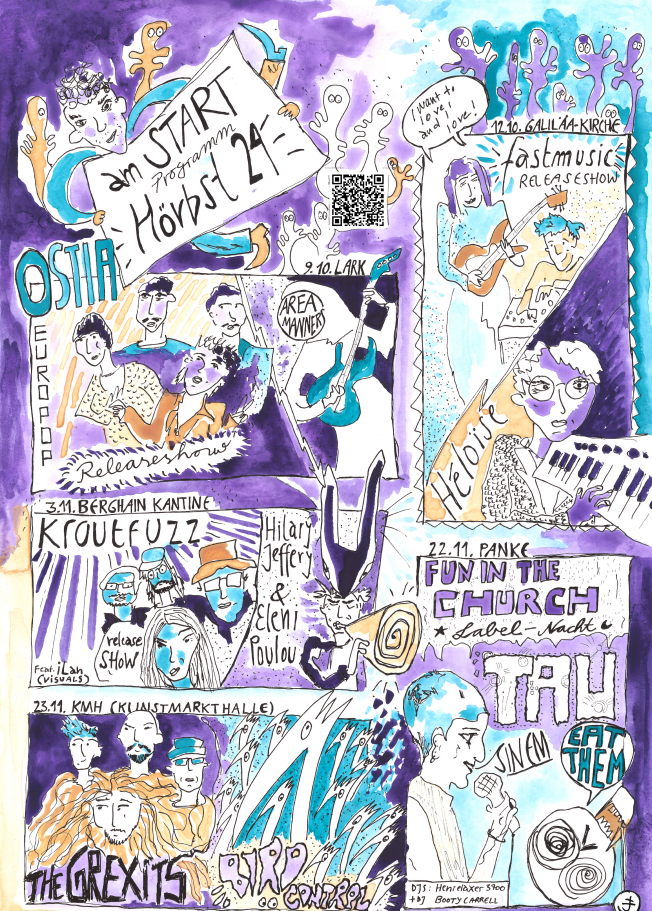 am START
Programm
Hörbst 24
I want to
love!
and love!
12.10. GALILÄA-KIRCHE
fastmusic
RELEASESHOW
Héloise
OSTIA
EUROPOP
9.10. LARK
AREA
MANNERS
Releaseshow
3.11. BERGHAIN KANTINE
KROUTFUZZ
release
SHOW
Feat. iLan
(VISUALS)
Hilary
Jeffery
&
Eleni
Poulou
22.11. PANKE
FUN IN THE
CHURCH
Label-Nacht
TAU
SINEM
EAT
THEM
DJS: Henrelaxer 5900
+ DJ BOOTY CARRELL
23.11. KMH (KUNSTMARKTHALLE)
THE GREXITS
BIRD
CONTROL